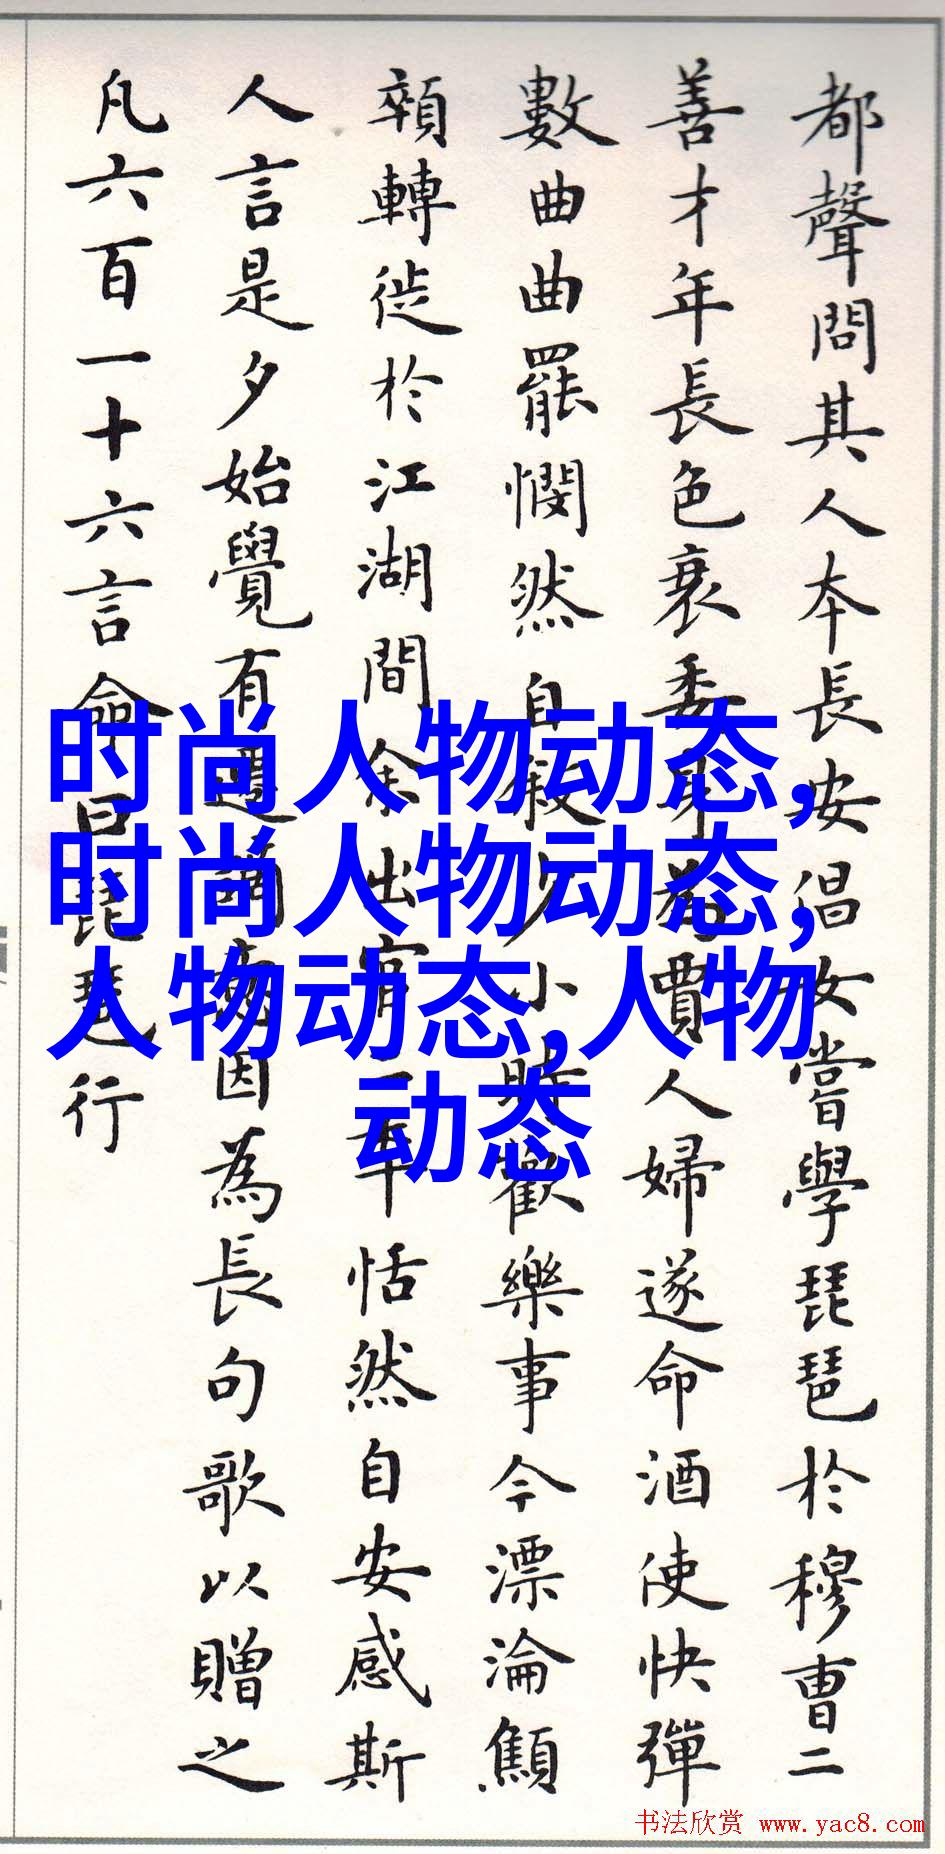 都聲問其人本長安倡女嘗學琵琶於穆曹二
善才年長色衰委身為賈人婦遂命酒使快彈
數曲曲罷憫然自敘少小時歡樂事今漂淪顦
顇轉徙於江湖間余出官二年恬然自安感斯
人言是夕始覺有遷謫意因為長句歌以贈之
凡六百一十六言命曰琵琶行
时尚人物动态,
时尚人物动态,
人物动态,人物
动态
书法欣赏 www.yac8.com